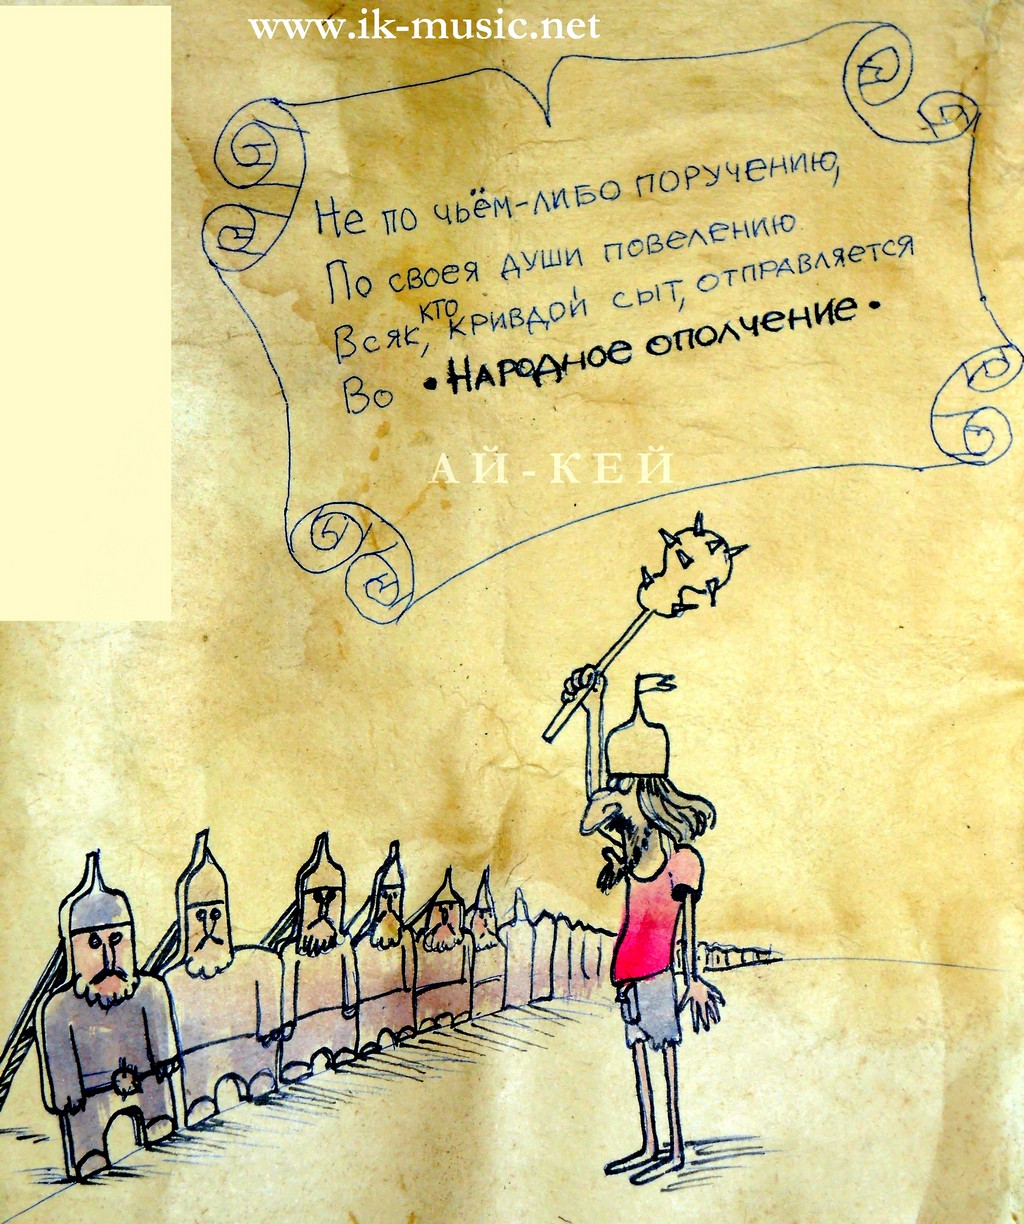 www.ik-music.net
Не по чьём-либо поручению,
По своея души повелению
Всяк, кто кривдой сыт, отправляется
Во • Народное ополчение •
АЙ-КЕЙ